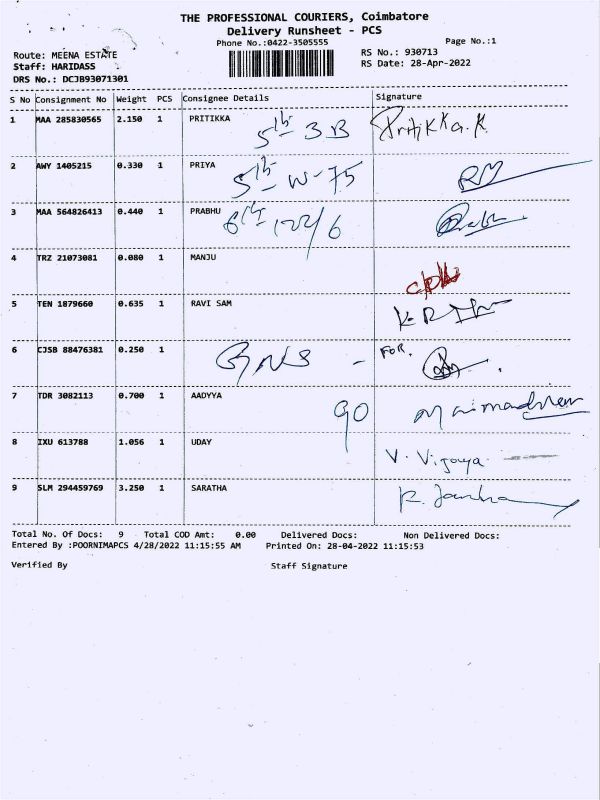 THE PROFESSIONAL COURIERS, Coimbatore
Delivery Runsheet - PCS
Phone No.:0422-3505555
Page No.:1
Route: MEENA ESTATE
RS No.: 930713
Staff: HARIDASS
RS Date: 28-Apr-2022
DRS No.: DCJB93071301
S No Consignment No Weight PCS Consignee Details Signature
1 MAA 285830565 2.150 1 PRITIKKA Pritikka.K
5th 3B
2 AWY 1405215 0.330 1 PRIYA
5th W-75
3 MAA 564826413 0.440 1 PRABHU
6th 122/6
4 TRZ 21073081 0.080 1 MANJU
5 TEN 1879660 0.635 1 RAVI SAM
6 CJSB 88476381 0.250 1
FOR.
7 TDR 3082113 0.700 1 AADYYA
90
8 IXU 613788 1.056 1 UDAY
V. Vijaya
9 SLM 294459769 3.250 1 SARATHA
Total No. Of Docs: 9 Total COD Amt: 0.00 Delivered Docs: Non Delivered Docs:
Entered By :POORNIMAPCS 4/28/2022 11:15:55 AM Printed On: 28-04-2022 11:15:53
Verified By Staff Signature